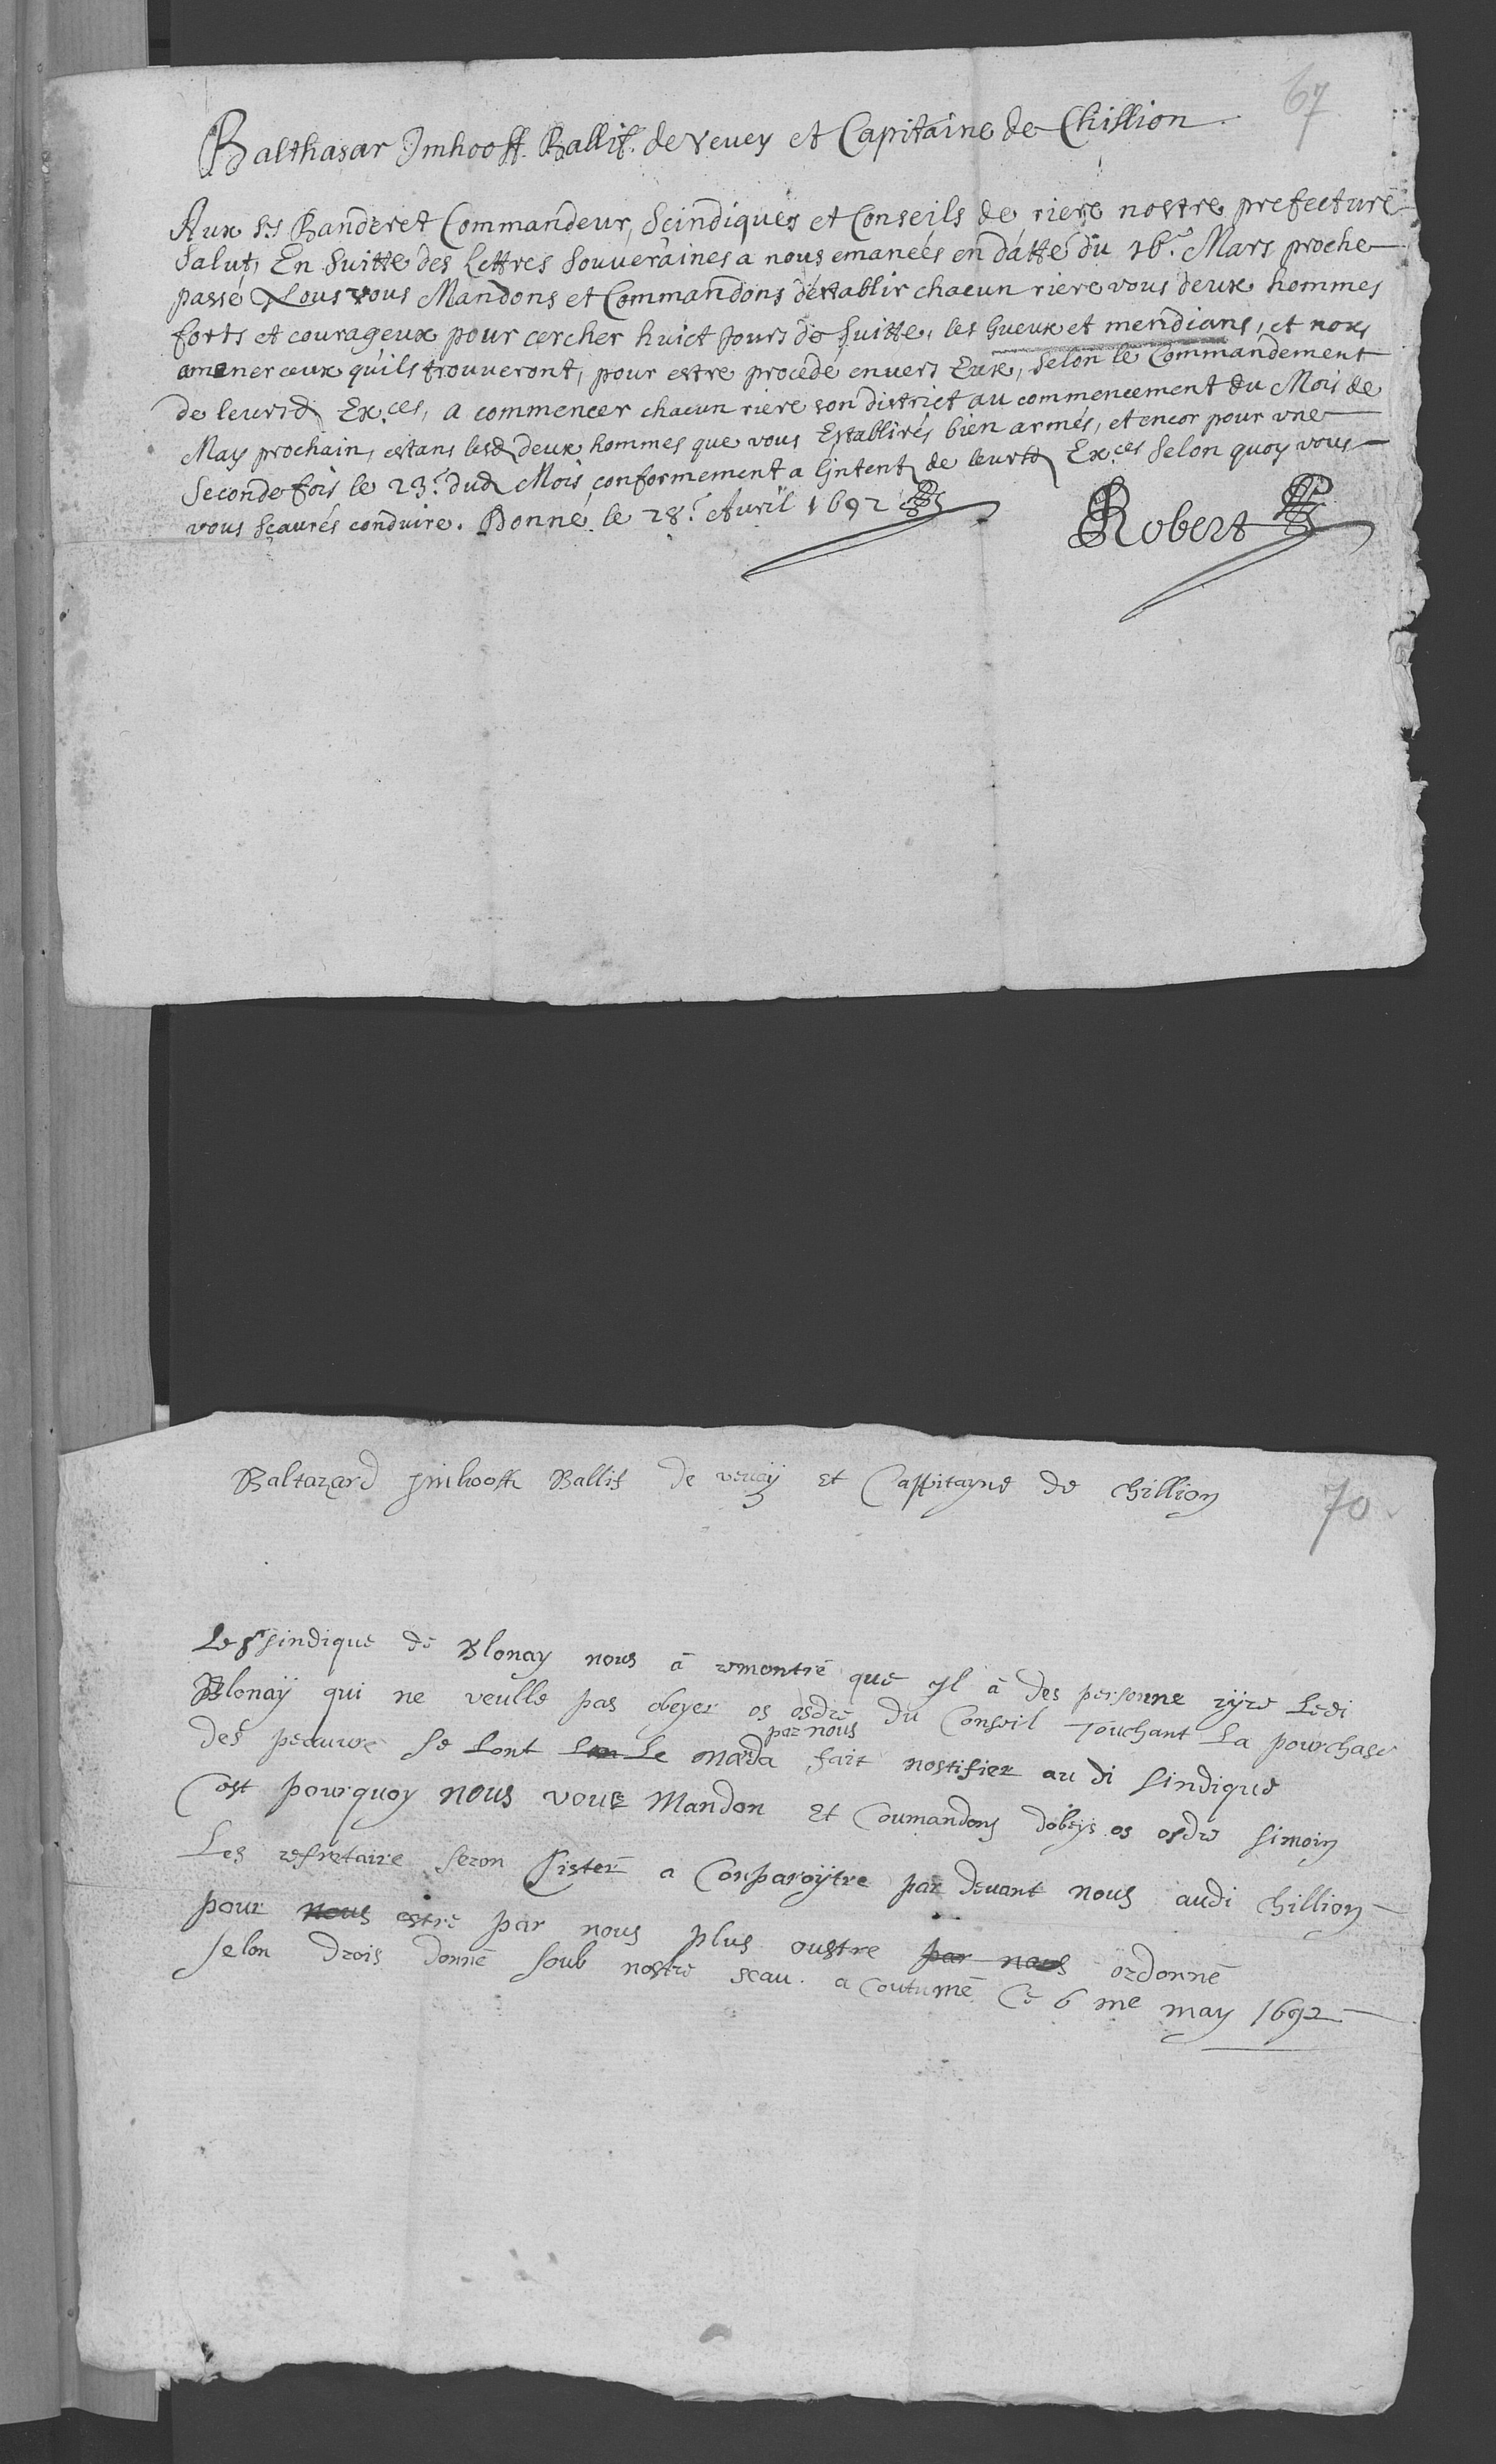 67
Balthasar Imhooff. Ballif. de Vevey et Capitaine de Chillion.
Aux Srs Banderet Commandeur, Scindiques et Conseils de riere nostre prefecture
Salut, En suitte des Lettres Souveraines a nous emanées en datte du 16.e Mars proche
passé Nous vous Mandons et Commandons d'establir chacun riere vous deux hommes
forts et courageux pour cercher huict Jours de suitte, les Gueux et mendians, et nous
amener ceux qu'ils trouveront, pour estre procedé envers Eux, selon le Commandement
de leursd Ex.ces, a commencer chacun riere son district au commencement du Mois de
May prochain, estans lesd deux hommes que vous Establirés bien armés, et encor pour une
Seconde fois le 23.e dud Mois, conformement a l'intent de leursd Ex.ces Selon quoy vous
vous sçaurés conduire. Donné le 28.e Avril 1692
Robert
70
Baltazard Jmhooff Ballif de vevaÿ et Cappitayne de chillion
Le Sr sindique de Blonay nous à remontré que yl à des personne riyre ledi
Blonaÿ qui ne veulle pas obeyer os ordre du Conseil Touchant La pourchase
par nous
des peauvre se Lont Le Manda fait nostifier au di sindique
Cest pourquoy nous vous Mandon et Coumandons dobeys os ordre simoin
Les refretaire seron Sister a Conparoÿtre par devant nous audi chillion
pour nous estre par nous plus oustre par nous ordonné
selon drois donné soub nostre seau. a Coutumé Ce 6 me may 1692